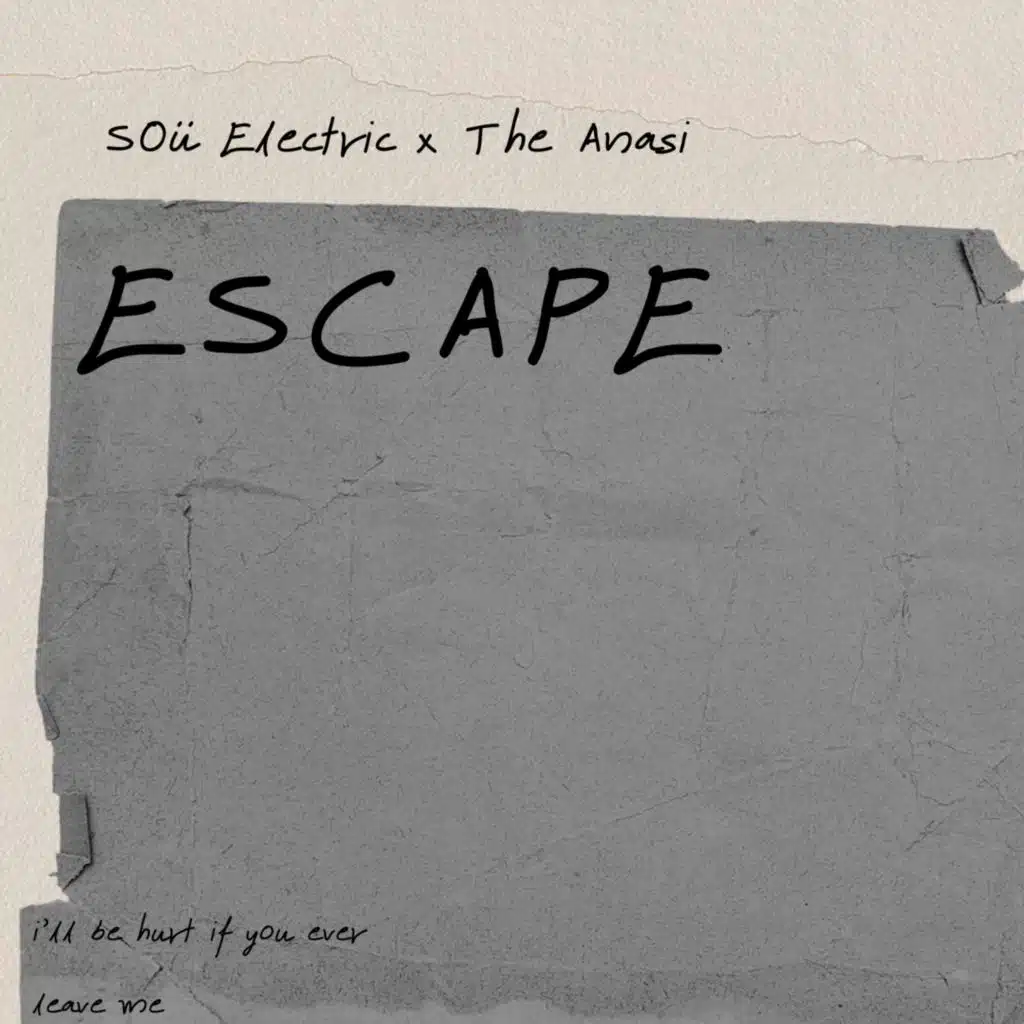 SOü Electric x The Anasi
ESCAPE
i'll be hurt if you ever
leave me